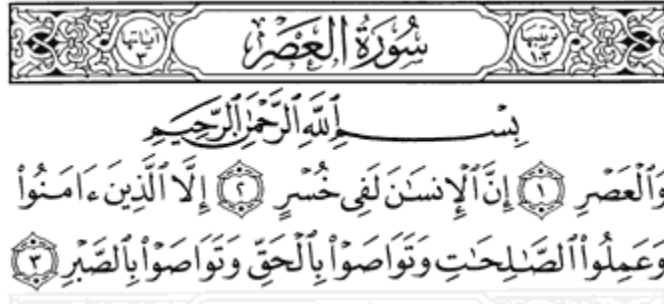 ترتيبها ١٠٣ سُورَةُ العَصْرِ آياتها ٣
بِسْمِ ٱللَّهِ ٱلرَّحْمَٰنِ ٱلرَّحِيمِ
وَٱلْعَصْرِ ١ إِنَّ ٱلْإِنسَٰنَ لَفِى خُسْرٍ ٢ إِلَّا ٱلَّذِينَ ءَامَنُوا۟
وَعَمِلُوا۟ ٱلصَّٰلِحَٰتِ وَتَوَاصَوْا۟ بِٱلْحَقِّ وَتَوَاصَوْا۟ بِٱلصَّبْرِ ٣